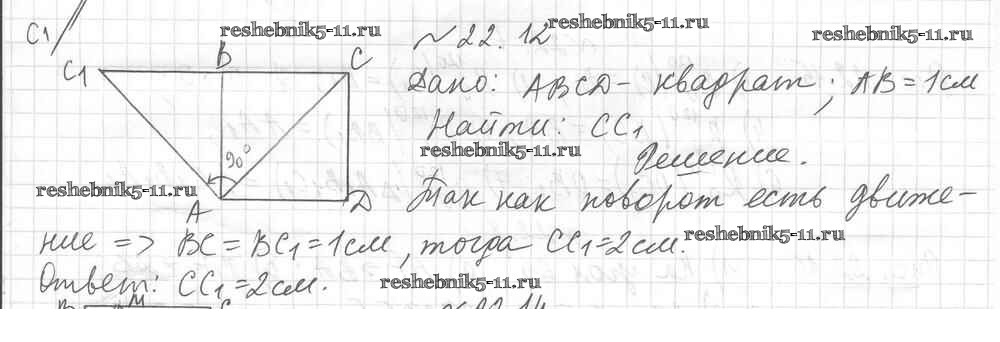 C1
reshebnik5-11.ru
reshebnik5-11.ru
reshebnik5-11.ru
C1 B C
№22.12
Дано: ABCD - квадрат; AB = 1см
Найти: CC1
90°
reshebnik5-11.ru
Решение.
reshebnik5-11.ru
A D
Так как поворот есть движе-
ние => BC = BC1 = 1см, тогда CC1 = 2см.
reshebnik5-11.ru
Ответ: CC1 = 2см.
reshebnik5-11.ru
M